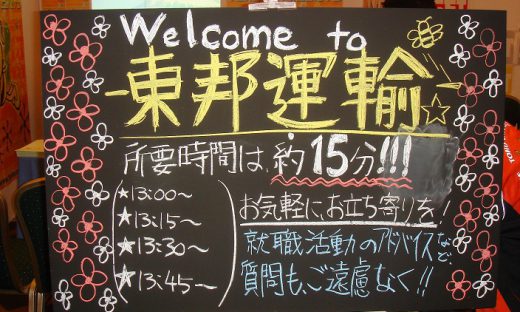 Welcome to
東邦運輸☆
所要時間は、約15分!!!
★13:00〜
★13:15〜
★13:30〜
★13:45〜
お気軽に、お立ち寄りを!
就職活動のアドバイスなど
質問も、ご遠慮なく!!